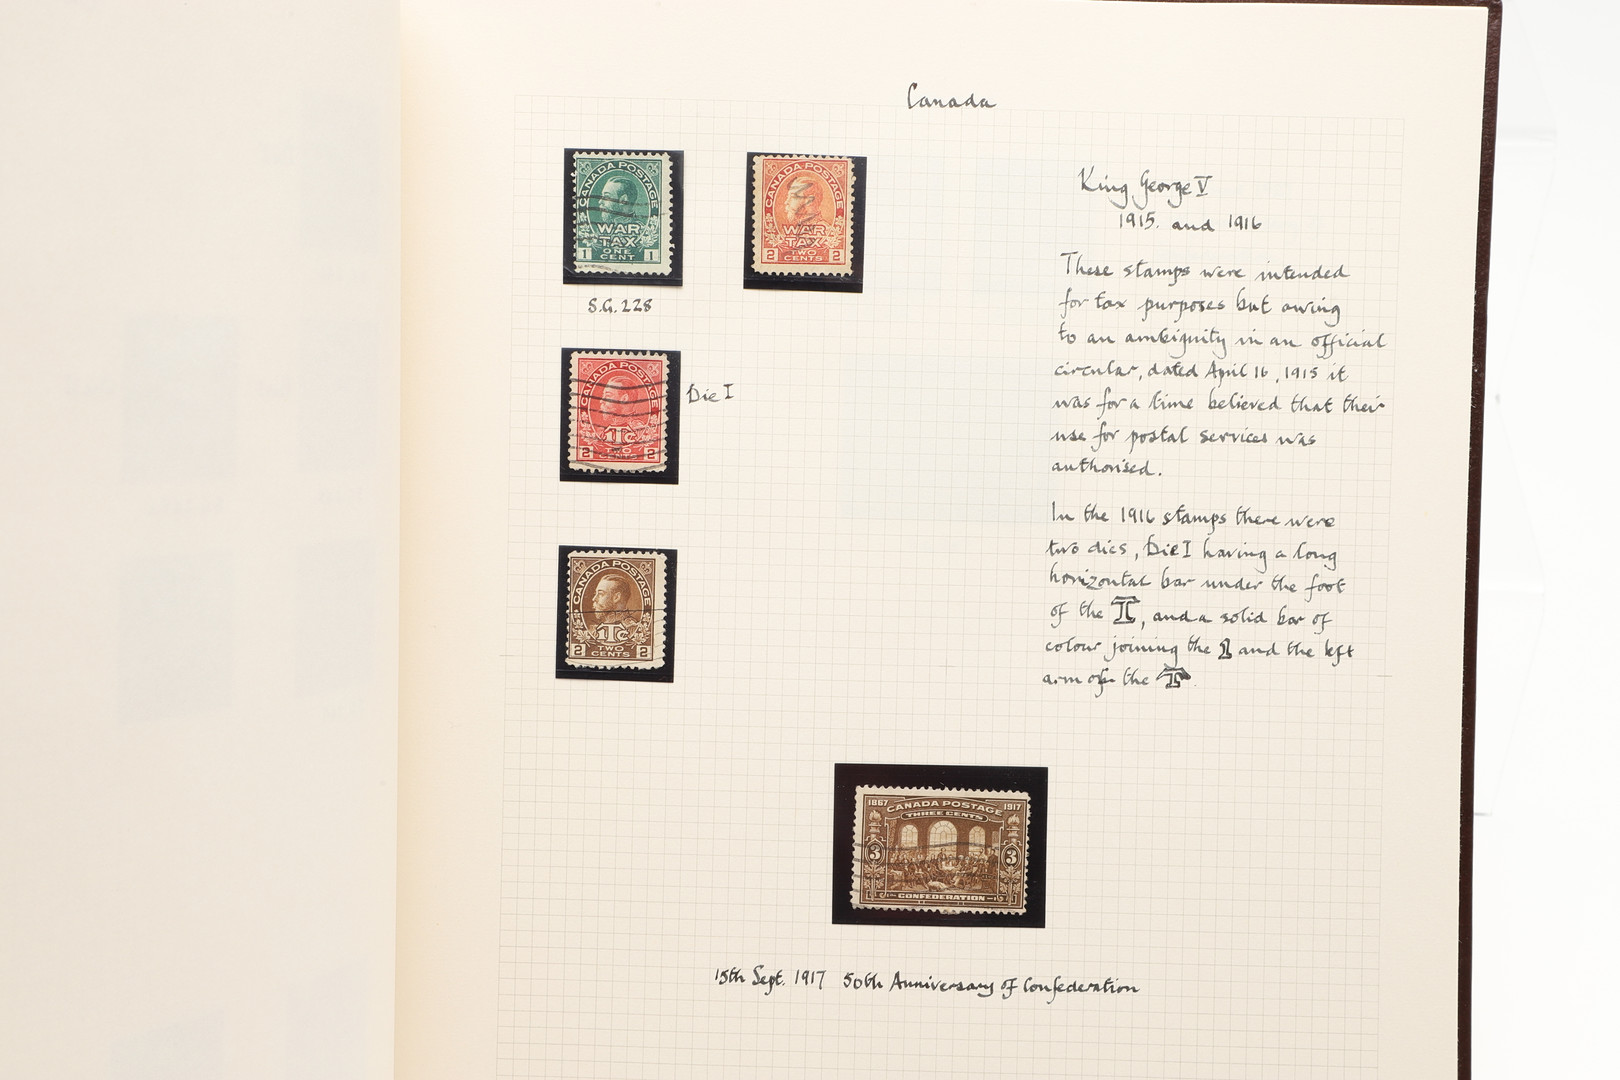 Canada
CANADA POSTAGE
WAR
TAX
1 ONE CENT 1
S.G. 228
CANADA POSTAGE
WAR
TAX
2 TWO CENTS 2
CANADA POSTAGE
1Tc
2 TWO CENTS 2
Die I
CANADA POSTAGE
1Tc
2 TWO CENTS 2
King George V
1915. and 1916
These stamps were intended
for tax purposes but owing
to an ambiguity in an official
circular, dated April 16, 1915 it
was for a time believed that their
use for postal services was
authorised.
In the 1916 stamps there were
two dies, Die I having a long
horizontal bar under the foot
of the T, and a solid bar of
colour joining the 1 and the left
arm of the T.
1867 CANADA POSTAGE 1917
THREE CENTS
3 3
CONFEDERATION
15th Sept. 1917 50th Anniversary of Confederation